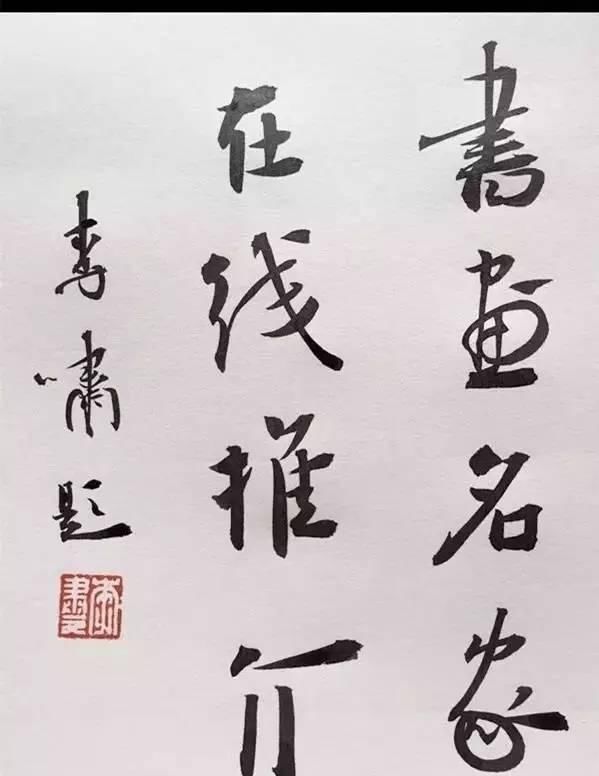 書畫名家
在线推介
李嘯题